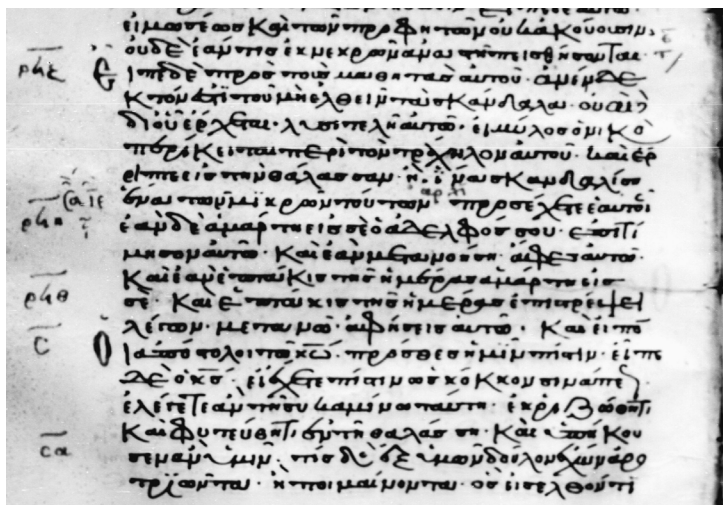 εἰ μωσέως καὶ τῶν προφητῶν οὐκ ἀκούουσιν·
οὐδὲ ἐάν τις ἐκ νεκρῶν ἀναστῇ πεισθήσονται
ρϟζ Εἶπε δὲ πρὸς τοὺς μαθητὰς αὐτοῦ· ἀνένδε
κτόν ἐστι τοῦ μὴ ἐλθεῖν τὰ σκάνδαλα· οὐαὶ
δι οὗ ἔρχεται· λυσιτελῆ αὐτῶ· εἰ μύλος ὀνικὸ
περίκειται περὶ τὸν τράχηλον αὐτοῦ· καὶ ἔρ
ριπται εἰς τὴν θάλασσαν· ἢ ἵνα σκανδαλίση
ἕνα τῶν μικρῶν τούτων· προσέχετε ἑαυτοῖ
ρϟη ἐὰν δὲ ἁμάρτη εἰς σὲ ὁ ἀδελφός σου· ἐπιτί
μησον αὐτῶ· καὶ ἐὰν μετανοήση ἄφες αὐτῶ·
καὶ ἐὰν ἑπτάκις τῆς ἡμέρας ἁμάρτη εἰς
ρϟθ σὲ· καὶ ἑπτάκις τῆς ἡμέρας ἐπιστρέψει
σ λέγων· μετανοῶ· ἀφήσεις αὐτῶ· Καὶ εἶπο
Οἱ ἀπόστολοι τῶ κω· πρόσθες ἡμῖν πίστιν· εἶπε
δὲ ὁ κς· εἰ ἔχετε πίστιν ὡς κόκκον σινάπε
ἐλέγετε ἂν τῆ συκαμίνω ταύτη· ἐκριζώθητι
καὶ φυτεύθητι ἐν τῆ θαλάσση· καὶ ὑπήκου
σα σεν ἂν ὑμῖν. τίς δὲ ἐξ ὑμῶν δοῦλον ἔχων ἀρο
τριῶντα· ἢ ποιμαίνοντα· ὃς εἰσελθόντι